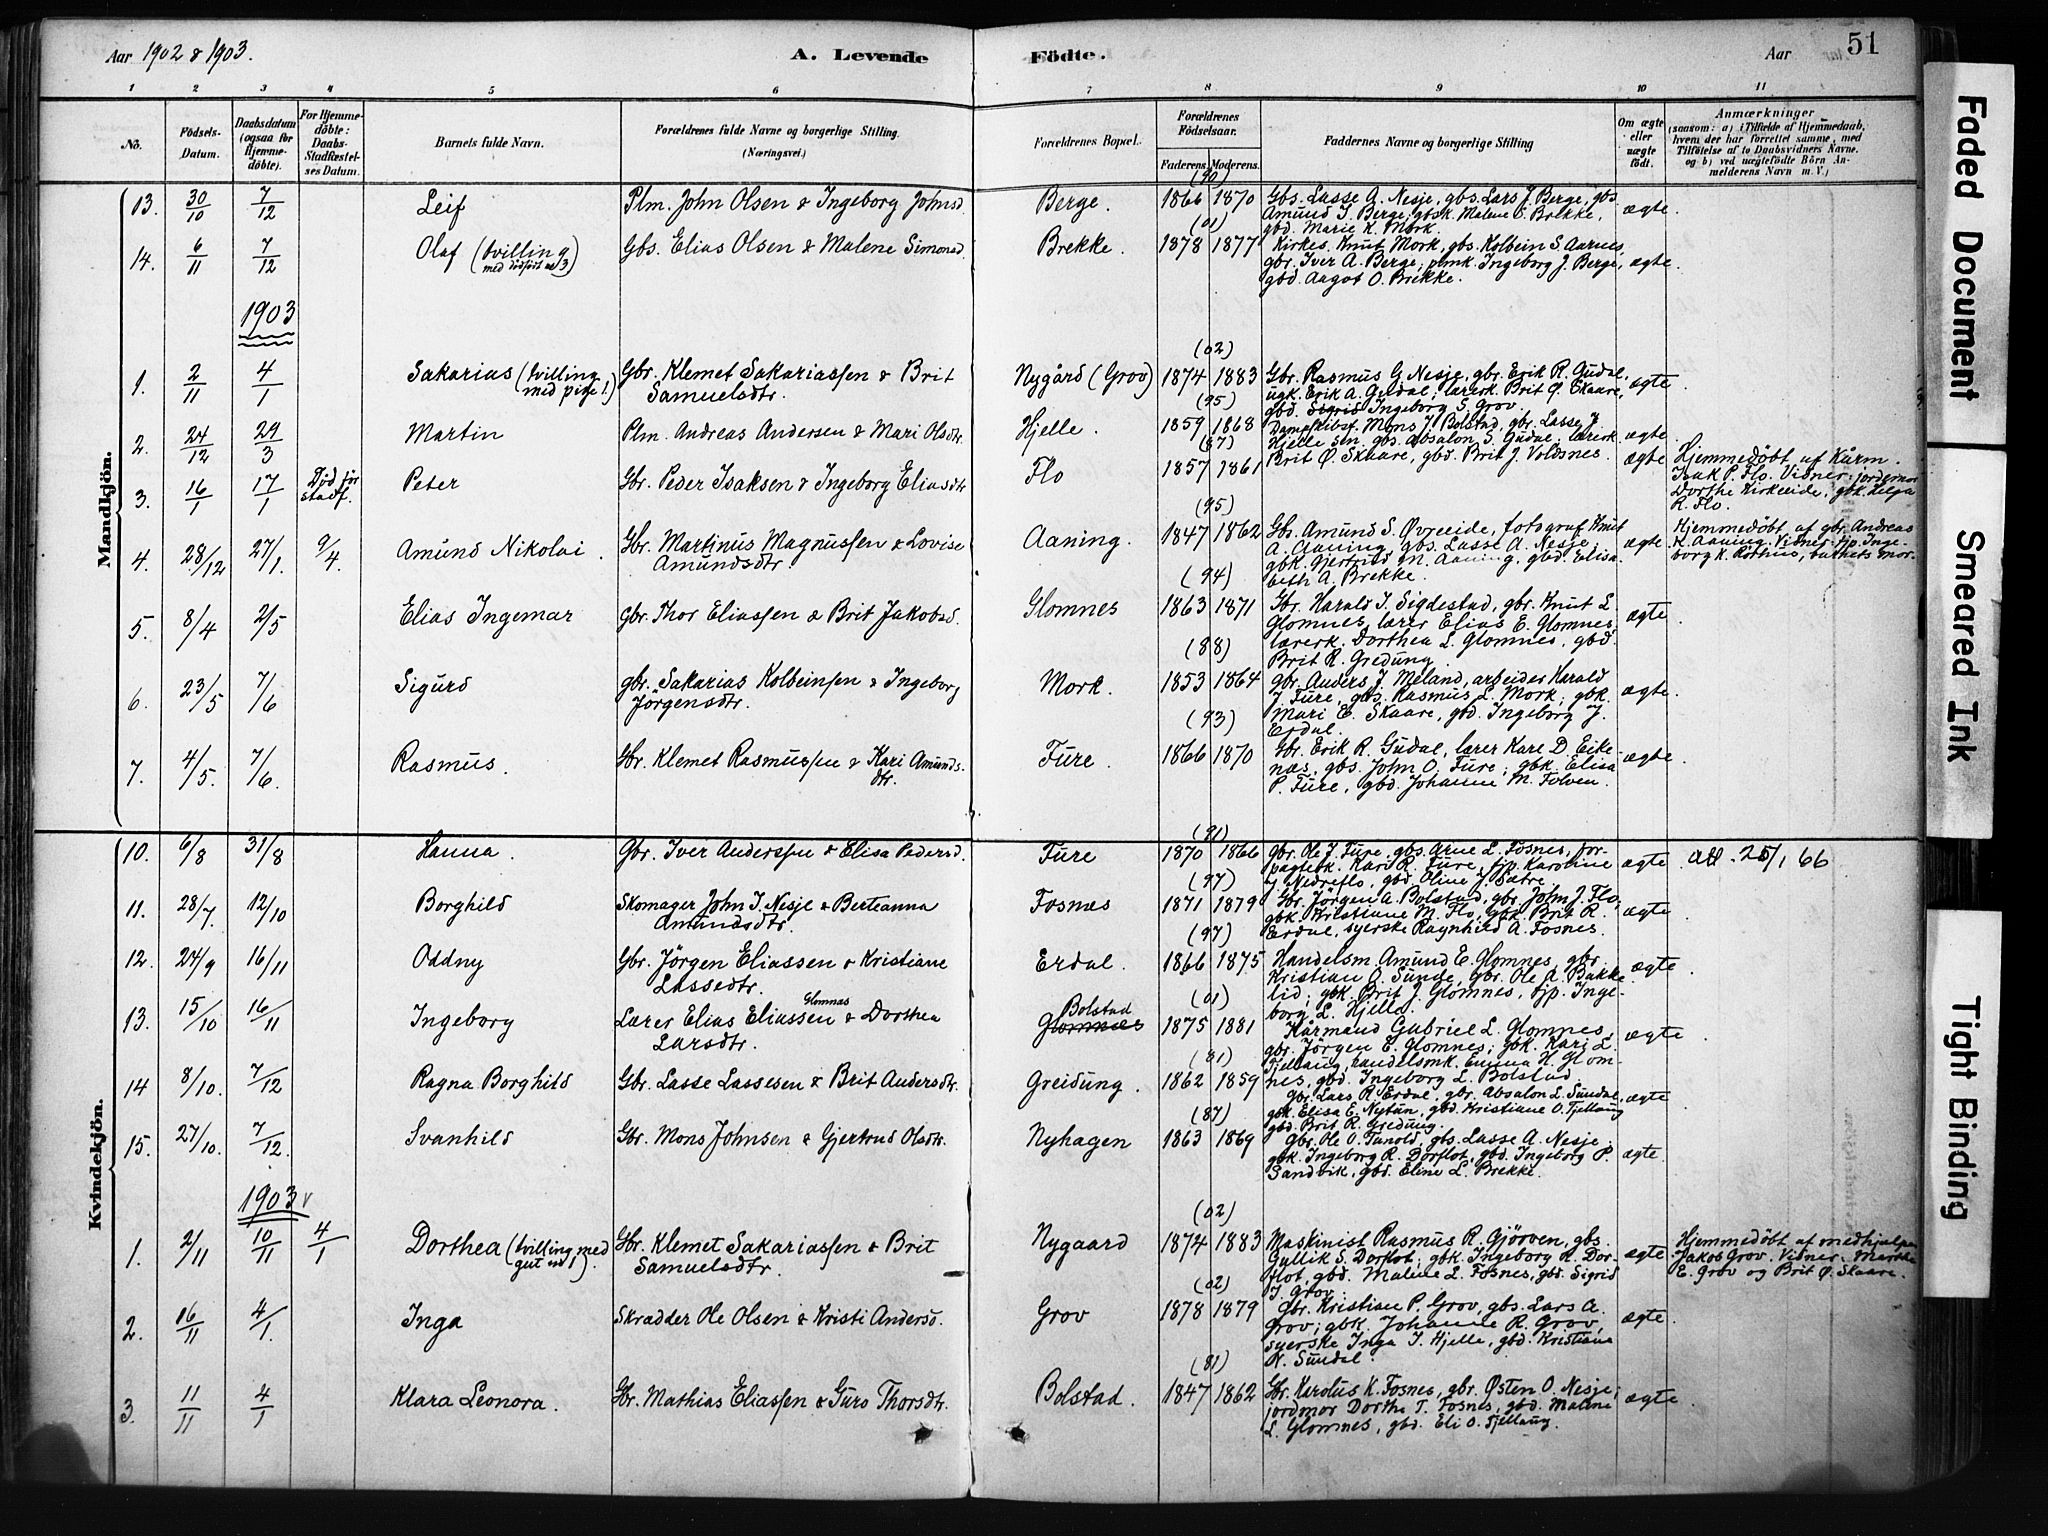 Aar 1902 & 1903.
A. Levende Födte.
Aar
51
1 2 3 4 5 6 7 8 9 10 11
No.
Födsels-Datum.
Daabsdatum (ogsaa for Hjemmedöbte).
For Hjemmedöbte: Daabs-Stadfæstelses Datum.
Barnets fulde Navn.
Forældrenes fulde Navne og borgerlige Stilling. (Næringsvei.)
Forældrenes Bopæl.
Forældrenes Födselsaar.
Faderens. Moderens.
Faddernes Navne og borgerlige Stilling
Om ægte eller uægte födt.
Anmærkninger
(saasom: a) i Tilfælde af Hjemmedaab, hvem der har forrettet samme, med Tilföielse af to Daabsvidners Navne. og b) ved uægtefödte Börn Anmelderens Navn m. V.)
Mandkjön.
(90)
13. 30/10 7/12 Leif Plm. John Olsen & Ingeborg Johnsd. Berge. 1866 1870 Gbs. Lasse A. Nesje, gbs. Lars J. Berge, gbs.
Amund I. Berge; gbsk. Malene S. Brekke,
gbd. Marie K. Mork. ægte.
(01)
14. 6/11 7/12 Olaf (tvilling
med dödfödt no 3) Gbs. Elias Olsen & Malene Simonsd. Brekke. 1878 1877 Kirkes. Knut Mork, gbs. Kolbein S. Aarnes,
gbr. Iver A. Berge; plmk. Ingeborg J. Berge,
gbd. Aagot O. Brekke. ægte.
1903
(02)
1. 2/11 4/1 Sakarias (tvilling
med pige 1.) Gbr. Klemet Sakariassen & Brit
Samuelsdtr. Nygård (Grov) 1874 1883 Gbr. Rasmus G. Nesje, gbr. Erik R. Gudal,
ugk. Erik A. Gudal; lærerk. Brit Ø. Skaare,
gbd. Sigrid Ingeborg S. Grov. ægte.
(95)
2. 24/12 29/3 Martin Plm. Andreas Andersen & Mari Olsdtr. Hjelle. 1859 1868 Dampskibsf. Mons J. Bolstad, gbr. Lasse J.
Hjelle, gbs. Absalon S. Gudal; lærerk.
Brit Ø. Skaare, gbd. Brit J. Voldsnes. ægte.
(87)
3. 16/1 17/1 Död för
stadf. Peter Gbr. Peder Isaksen & Ingeborg Eliasdtr. Flo 1857 1861 ægte Hjemmedöbt af Kårm.
Isak P. Flo. Vidner: jordemor
Dorthe Kirkeeide, gbk. Helga
R. Flo.
(95)
4. 28/12 27/1. 9/4. Amund Nikolai. Gbr. Martinus Magnussen & Lovise
Amundsdtr. Aaning. 1847 1862 Gbs. Amund S. Øvreeide, fotograf Knut
A. Aaning, gbs. Lasse A. Nesje;
gbk. Gjertrud M. Aaning, gbd. Elisa-
beth A. Brekke. ægte Hjemmedöbt af gbr. Andreas
K. Aaning. Vidner: tjp. Inge-
borg K. Rothus, barnets mor.
(94)
5. 8/4 2/5 Elias Ingemar Gbr. Thor Eliassen & Brit Jakobsd. Glomnes 1863 1871 Gbr. Harald I. Sigdestad, gbr. Knut L.
Glomnes, lærer Elias E. Glomnes;
lærerk. Dorthea L. Glomnes, gbd.
Brit R. Gredung. ægte
(88)
6. 23/5 7/6 Sigurd gbr. Sakarias Kolbeinsen & Ingeborg
Jörgensdtr. Mork. 1853 1864 Gbr. Anders J. Meland, arbeider Harald
J. Fure, gbs. Rasmus L. Mork; gbk.
Mari E. Skaare, gbd. Ingeborg J.
Erdal. ægte.
(93)
7. 4/5. 7/6. Rasmus. Gbr. Klemet Rasmussen & Kari Amunds-
dtr. Fure. 1866 1870 Gbr. Erik R. Gudal, lærer Kare D. Eike-
næs, gbs. John O. Fure; gbk. Elisa
P. Fure, gbd. Johanne M. Folven. ægte.
Kvindekjön.
(91)
10. 6/8 31/8 Hanna. Gbr. Iver Anderssen & Elisa Pedersd. Fure 1870 1866 Gbr. Ole J. Fure, gbs. Arne L. Fosnes, for-
pagterk. Kari R. Fure, tjp. Karoline
J. Nedreflo, gbd. Oline J. Sætre. ægte att. 25/1 66
(97)
11. 28/7. 12/10 Borghild Skomager John I. Nesje & Berteanna
Amundsdtr. Fosnæs 1871 1879 Gbr. Jörgen A. Bolstad, gbr. John J. Flo;
gbk. Kristiane M. Flo, gbd. Brit R.
Erdal, syerske Ragnhild A. Fosnes. ægte.
(97)
12. 24/9 16/11 Oddny Gbr. Jörgen Eliassen & Kristiane
Lassedtr. Erdal. 1866 1875 Handelsm. Amund E. Glomnes, gbr.
Kristian O. Sunde, gbr. Ole A. Bakke-
lid; gbk. Brit J. Glomnes, tjp. Inge-
borg L. Hjelle. ægte.
(01)
13. 15/10 16/11 Ingeborg Lærer Elias Eliassen Glomnæs & Dorthea
Larsdtr. Bolstad
Glomnæs 1875 1881 Kårmand Gabriel L. Glomnes,
gbr. Jörgen E. Glomnes; gbk. Kari L.
Tjellaug, handelsmk. Emma H. Glom-
nes, gbd. Ingeborg L. Bolstad ægte.
(81)
14 8/10. 7/12 Ragna Borghild Gbr. Lasse Lassesen & Brit Andersdtr. Greidung. 1862 1859 Gbr. Lars R. Erdal, gbr. Absalon L. Sundal,
gbk. Elisa E. Nytun, gbd. Kristiane O. Tjellaug
gbd. Brit R. Gredung. ægte
(87)
15. 27/10. 7/12. Svanhild Gbr. Mons Johnsen & Gjertrud Olsdtr. Nyhagen 1863 1869 Gbr. Ole O. Tunold, gbs. Lasse A. Nesje;
gbk. Ingeborg R. Dorflot, gbd. Ingeborg P.
Sandvik, gbd. Eline L. Brekke. ægte.
1903
(02)
1. 2/11 10/11 4/1 Dorthea (tvilling med
gut no 1). Gbr. Klemet Sakariassen & Brit
Samuelsdtr. Nygaard 1874 1883 Maskinist Rasmus R. Gjörven, gbs.
Gullik S. Dorflot; gbk. Ingeborg R. Dor-
flot, gbd. Malene L. Fosnes, gbd. Sigrid
I. Grov. ægte Hjemmedöbt af medhjelper
Jakob Grov. Vidner: Marthe
E. Grov og Brit Ø. Skaare.
(02)
2. 16/11 4/1. Inga Skrædder Ole Olsen & Kristi Andersd. Grov 1878 1879 Gbr. Kristian P. Grov, gbs. Lars A.
Grov; gbk. Johanne R. Grov,
syerske Inga I. Hjelle, gbd. Kristiane
N. Sundal. ægte.
(81)
3. 11/11 4/1 Klara Leonora. Gbr. Mathias Eliassen & Guro Thorsdtr. Bolstad. 1847 1862 Gbr. Karolus K. Fosnes, gbr. Østen O. Nesje;
jordmor Dorthe T. Fosnes, gbd. Malene
L. Glomnes, gbd. Eli O. Tjellaug. ægte.
Faded Document
Smeared Ink
Tight Binding